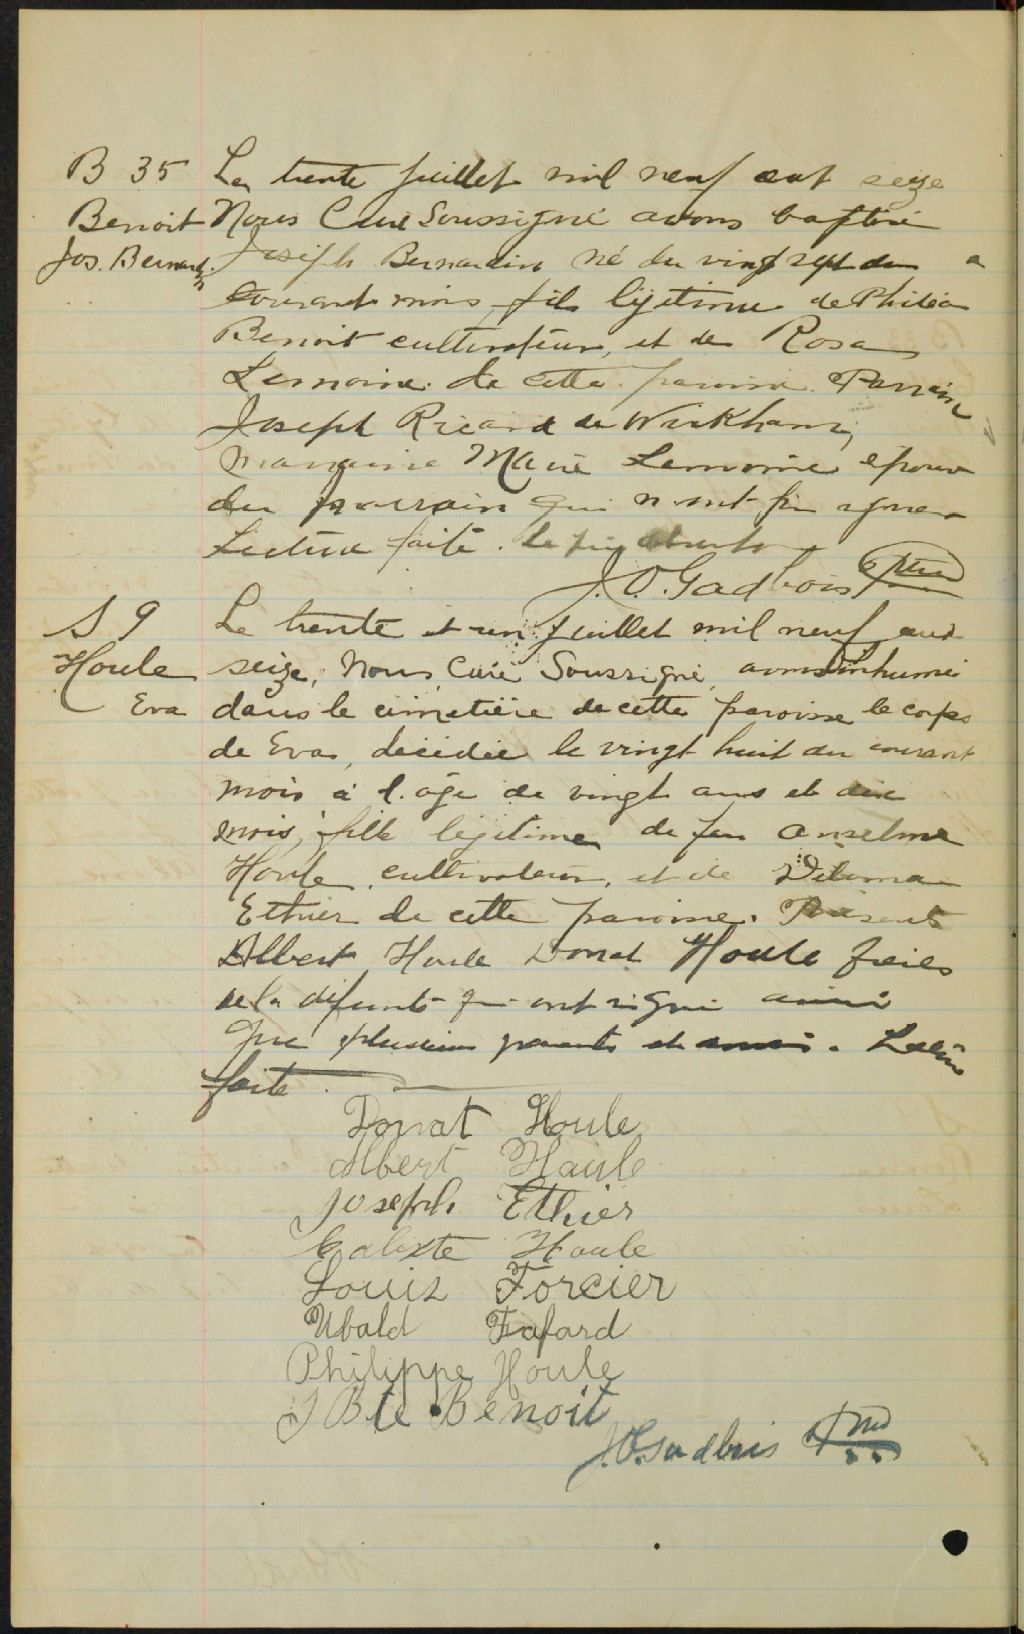 B 35 Le trente juillet mil neuf cent seize
Benoit Nous Curé Soussigné avons baptisé
Jos. Bernardin Joseph Bernardin né du vingt sept du
courant mois, fils légitime de Philéas
Benoit cultivateur, et de Rosa
Lemoine de cette paroisse. Parrain
Joseph Ricard de Wickham,
marraine Marie Lemoine épouse
du parrain qui n'ont pu signer
Lecture faite. le père absent
J. O. Gadbois Ptre
S 9 Le trente et un juillet mil neuf cent
Houle seize, Nous, Curé Soussigné, avons inhumé
Eva dans le cimetière de cette paroisse le corps
de Eva, décédée le vingt huit du courant
mois à l'âge de vingt ans et dix
mois, fille légitime de feu Anselme
Houle, cultivateur, et de
Ethier de cette paroisse. Présents
Albert Houle Donat Houle frères
de la défunte qui ont signé ainsi
que plusieurs parents et amis. Lecture
faite.
Donat Houle
Albert Houle
Joseph Ethier
Calixte Houle
Louis Forcier
Ubald Fafard
Philippe Houle
J Bte Benoit
J. O. Gadbois Ptre